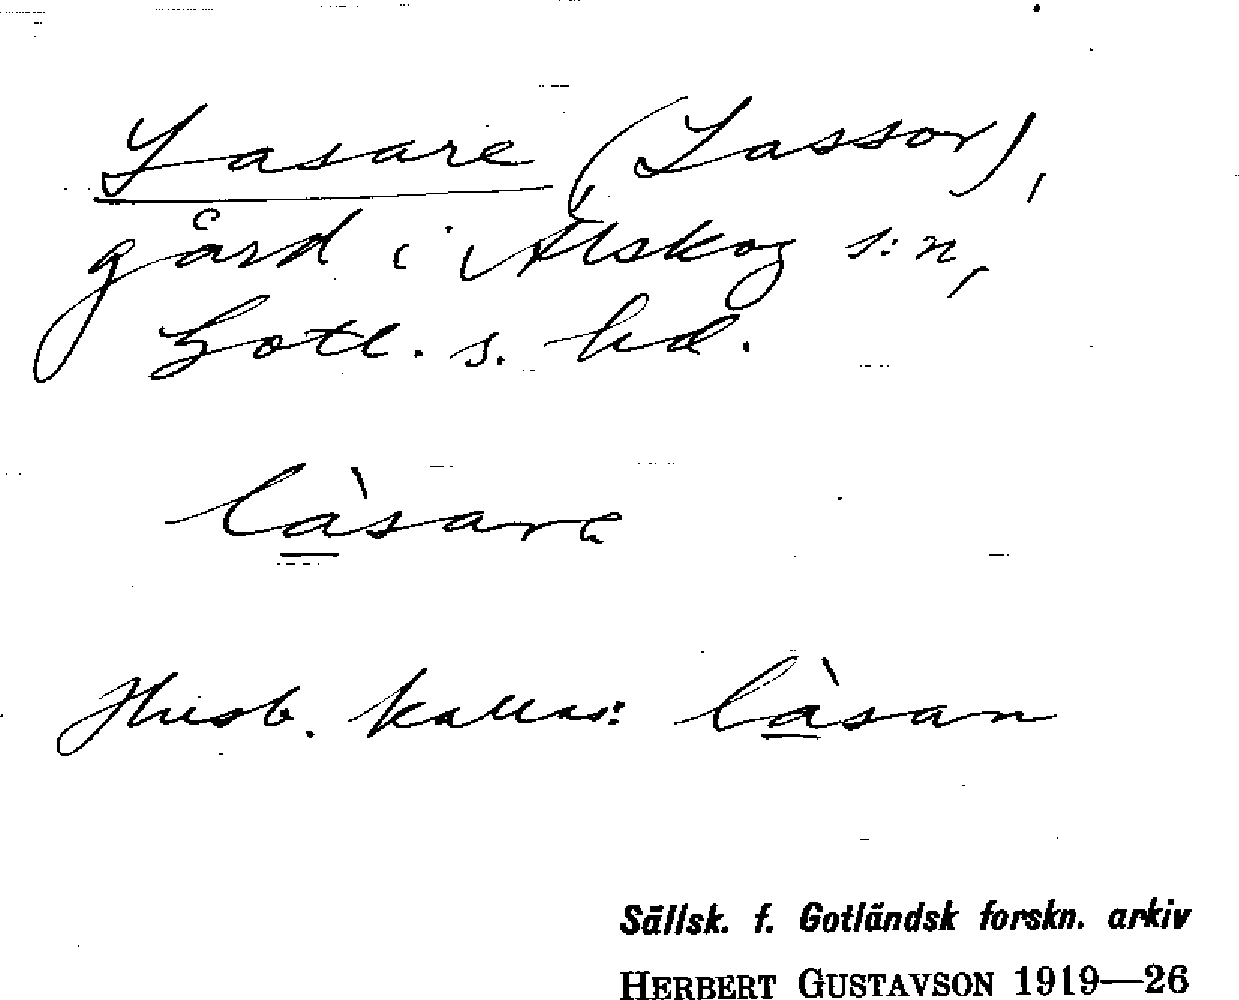 Lasare (Lassor),
gård i Alskog s:n,
Gotl. s. hd.
làsare
Husb. kallas: làsan
Sällsk. f. Gotländsk forskn. arkiv
HERBERT GUSTAVSON 1919—26